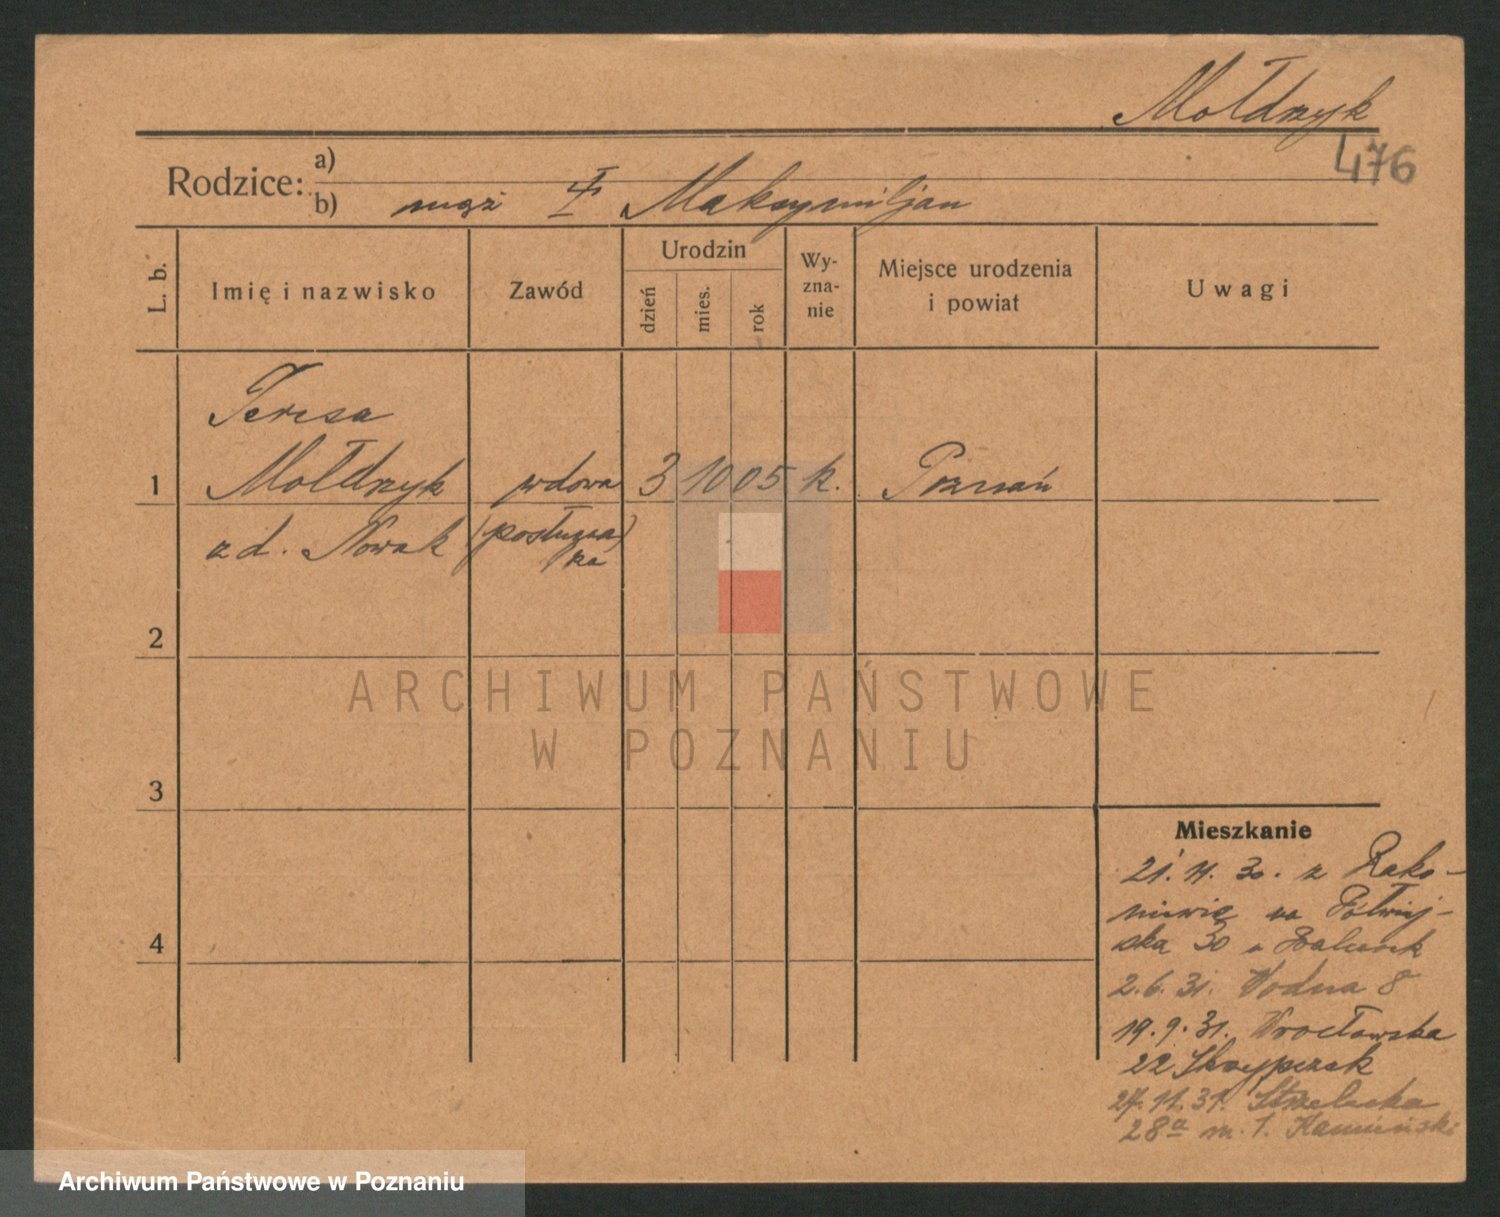 Mołdrzyk
476
Rodzice: a)
b) mąż Maksymiljan
L. b.
Imię i nazwisko
Zawód
Urodzin
dzień
mies.
rok
Wy-
zna-
nie
Miejsce urodzenia
i powiat
Uwagi
Teresa
1 Mołdrzyk wdowa 3 10 05 k. Poznań
z d. Nowak (posługacz
ka)
2
3
4
Mieszkanie
21. 11. 30. z Rako-
niewic na Półwiej-
ska 30 u
2.6.31. Wodna 8
19.9.31. Wrocławska
22 Skrzypczak
27.11.31. Strzelecka
28a m. 1. Kamiński
ARCHIWUM PAŃSTWOWE
W POZNANIU
Archiwum Państwowe w Poznaniu